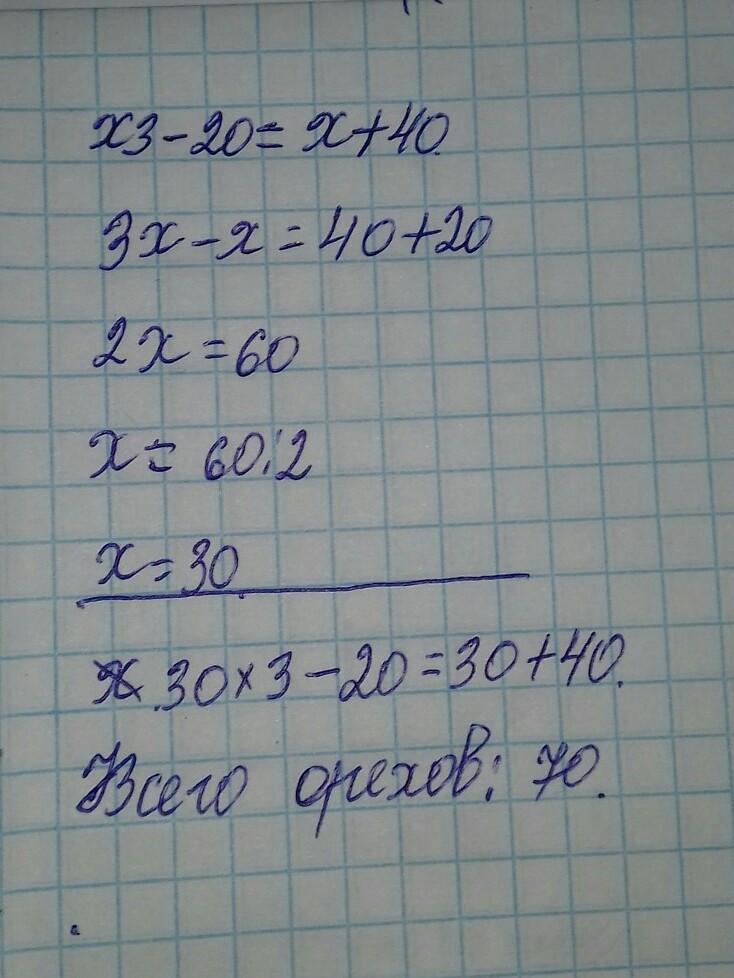 x3-20=x+40.
3x-x=40+20
2x=60
x=60:2
x=30
30×3-20=30+40.
Всего орехов: 70.